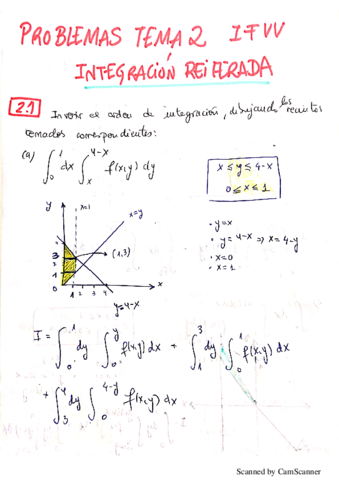 PROBLEMAS TEMA 2 IFVV
INTEGRACIÓN REITERADA
2.1 Invertir el orden de integración, dibujando los recintos
tomados correspondientes:
(a) ∫₀¹ dx ∫ₓ^{4-x} f(x,y) dy
x ≤ y ≤ 4-x
0 ≤ x ≤ 1
y
x=1
x=y
3
(1,3)
1
0
1 2 3 4
x
y=4-x
• y=x
• y=4-x ⇒ x=4-y
• x=0
• x=1
I = ∫₀¹ dy ∫₀^y f(x,y) dx + ∫₁³ dy ∫₀¹ f(x,y) dx
+ ∫₃⁴ dy ∫₀^{4-y} f(x,y) dx
Scanned by CamScanner